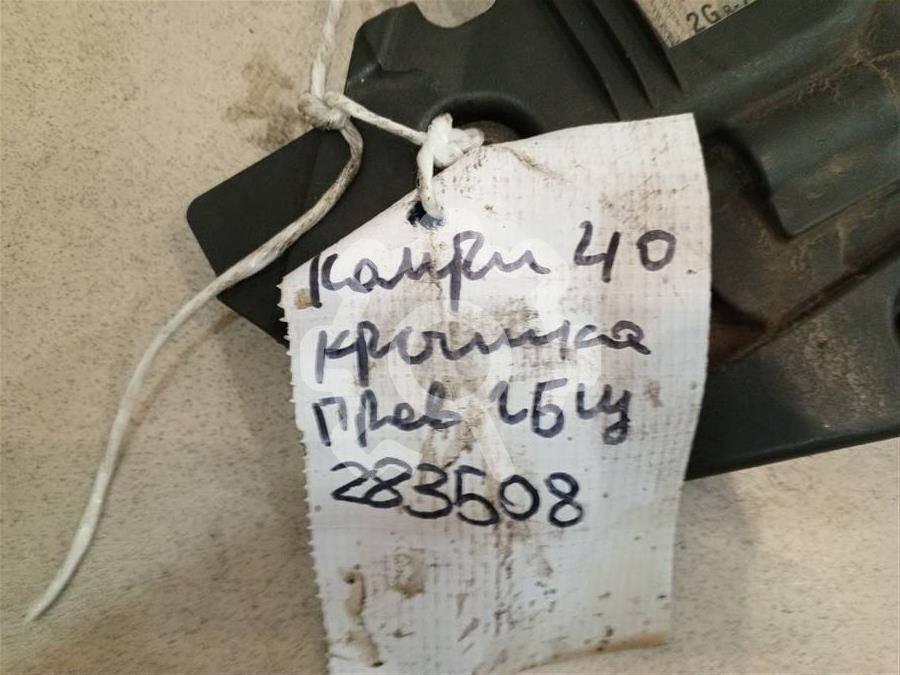 2G R-
Камри 40
крышка
прав ГБЦ
283508